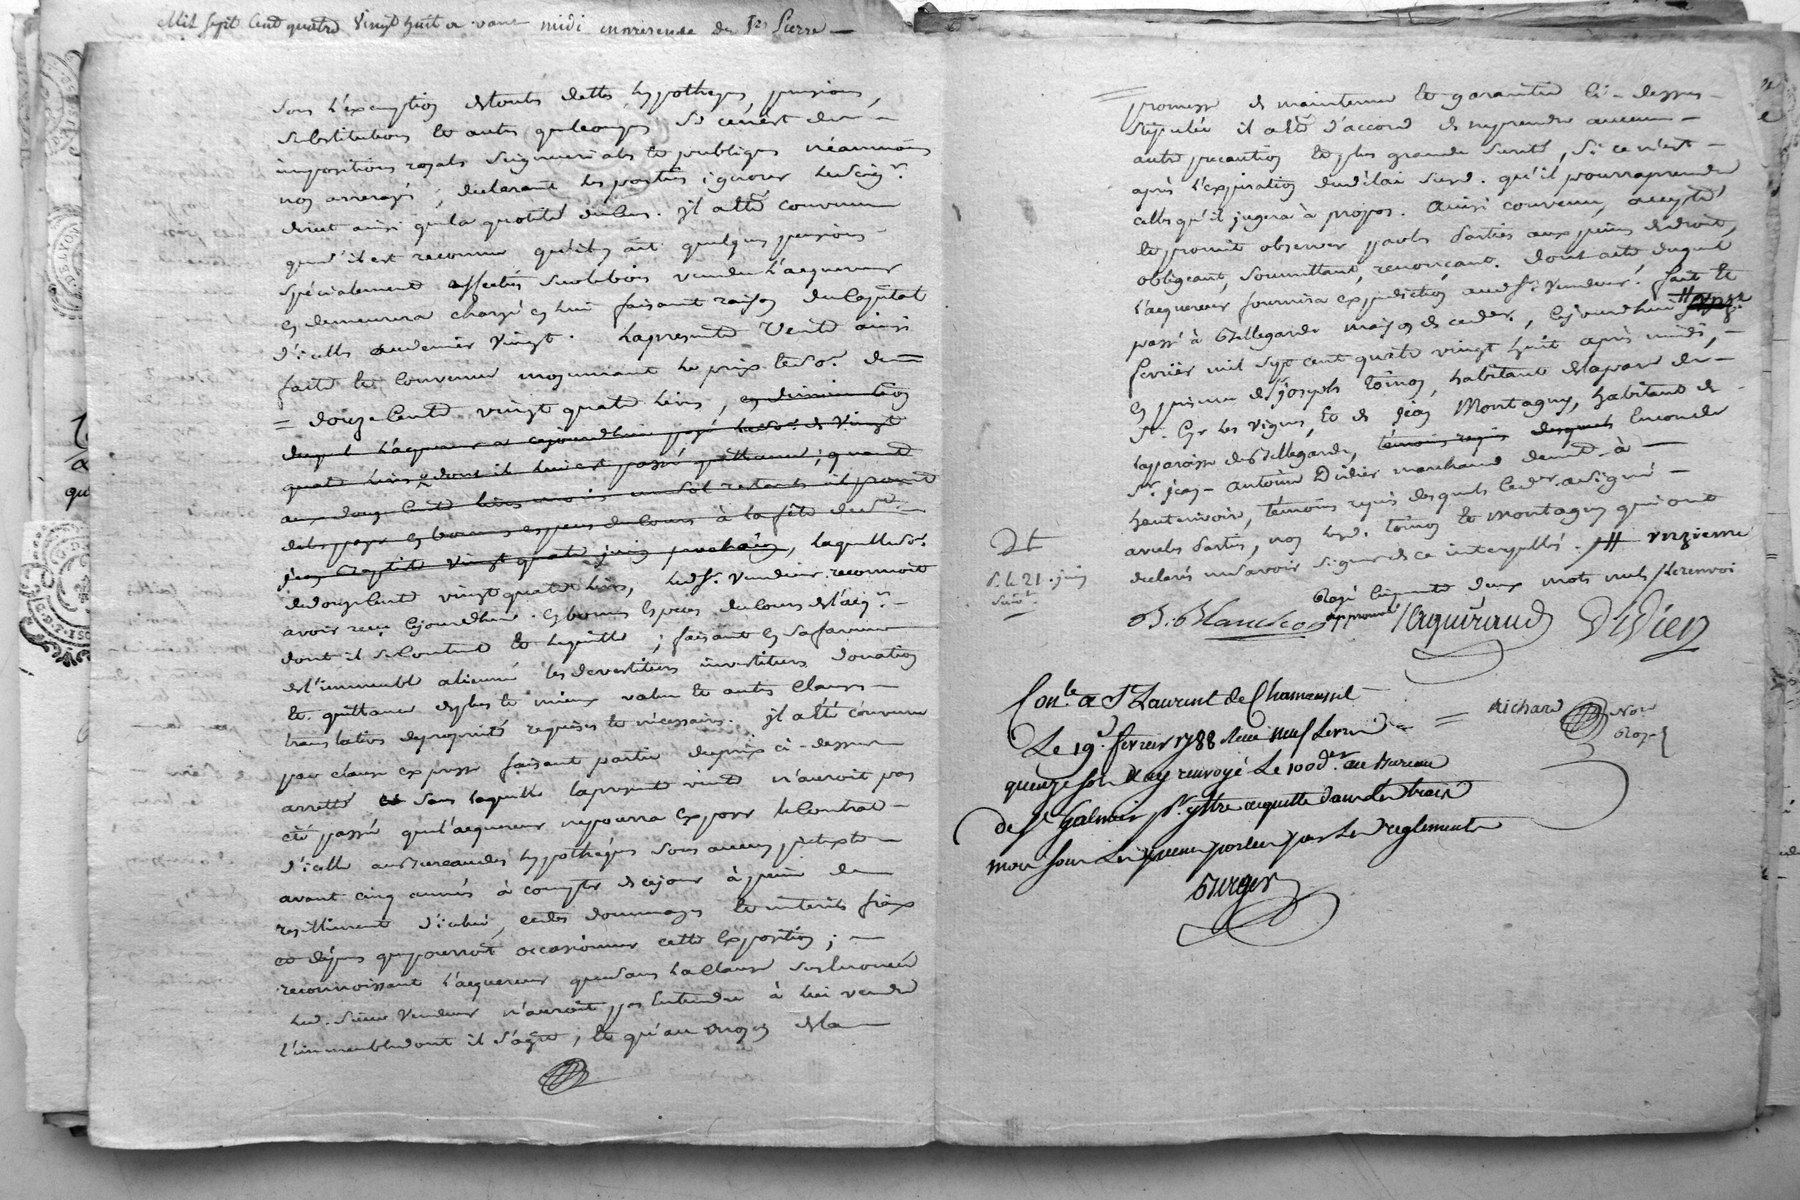 Mil sept Cent quatre Vingt huit avant midi en presence de Sr Pierre
sous l'exemption de touts dettes, hypotheques, pensions,
substitutions et autres quelconques si ce n'est des
impositions royals seigneurials et publiques néanmoins
non arreragés, declarant les parties ignorer le seigr.
direct ainsi que la quotité du Cens. il a été convenu
que s'il est reconnu qu'il y ait quelques pensions
spécialement affectés sur le bois vendu l'acquereur
en demeurera chargé en lui faisant raison du Capital
d'icelles au denier vingt. la presente Vente ainsi
faite et Convenue moyennant le prix et so. de
= douze Cents vingt quatre livres, en diminution
duquel l'acquereur a cejourdhui payé la so. de Vingt
quatre livres dont il lui est passé quittance; quand
aux douze Cents livres restants il promet
de les payer en bonnes especes de Cours à la fête de
jean Baptiste Vingt quatre juin prochain, laquelle so.
de douze Cents vingt quatre livres, led. sr. Vendeur reconnoit
avoir reçu cejourdhui en bonnes especes de Cours de l'acqr.
dont il se Contente et le quitte; faisant en sa faveur
de l'immeuble aliené les devestitures investitures donation
et quittance de plus et mieux value et autres Clauses
translatives de proprieté requises et nécessaires. il a été convenu
par clause expresse faisant partie du prix ci-dessus
arretté et sans laquelle la presente vente n'auroit pas
été passée que l'acquereur ne pourra exposer le Contrat
d'icelle au Bureau des hypothéques sous aucun pretexte
avant cinq années à compter de ce jour à peine de
resiliement d'icelui, et des dommages et interets frais
et dépens que pourroit occasionner cette exposition;
reconnoissant l'acquereur que sans la Clause susenoncée
led. Sieur Vendeur n'auroit pas entendu à lui vendre
l'immeuble dont il s'agit; et qu'au moyen de la
promesse de maintenue et garantie ci-dessus
stipulée il a été d'accord de ne prendre aucune
autre precaution et plus grande sureté, si ce n'est
après l'expiration du délai susd. qu'il pourra prendre
celles qu'il jugera à propos. Ainsi convenu, accepté
et promit observer par les Parties aux peines de droit,
obligeant, soumettant, renonçant. dont acte duquel
l'acquereur fournira expedition aud. sr. Vendeur. fait et
passé à Bellegarde maison de ced. r., cejourdhui
fevrier mil sept cent quatre vingt huit après midi,
en presence de joseph Toinon, habitant de la par. de
St. Cyr les Vignes, et de jean Montagny, habitant de
la paroisse de Bellegarde, temoins requis desquels Encore de
Sr. jean-antoine Didier marchand demt. à
hauterivoire, témoins requis desquels led. a signé
avec les Parties, non lesd. Toinon et Montagny qui ont
declarés ne savoir signer de ce interpellés. # onzieme
Rayé cinquante deux mots nuls et le renvoi
approuvé
s. le 21. juin
suivt.
Didier
Richard Nore
Royal
Conle. a St Laurent de Chamousset
Le 19e. fevrier 1788 Reçu neuf Livres
quinze sous Et ay renvoyé Le 100d. au Bureau
de St Galmier pr. y être acquitté dans les trois
mois sous Les peines portées par Les reglements
Burger